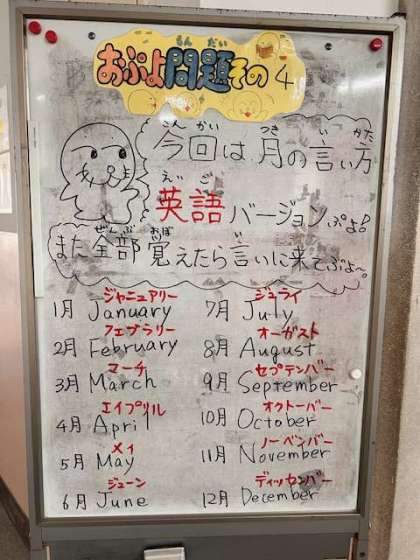 もんだい
おぷよ問題その4
こんかい つき い かた
今回は月の言い方
えいご
英語バージョンぷよ!
ぜんぶ おぼ い
また全部覚えたら言いに来てぷよ〜。
ジャニュアリー
1月 January
フェブラリー
2月 February
マーチ
3月 March
エイプリル
4月 April
メイ
5月 May
ジューン
6月 June
ジュライ
7月 July
オーガスト
8月 August
セプテンバー
9月 September
オクトーバー
10月 October
ノーベンバー
11月 November
ディッセンバー
12月 December